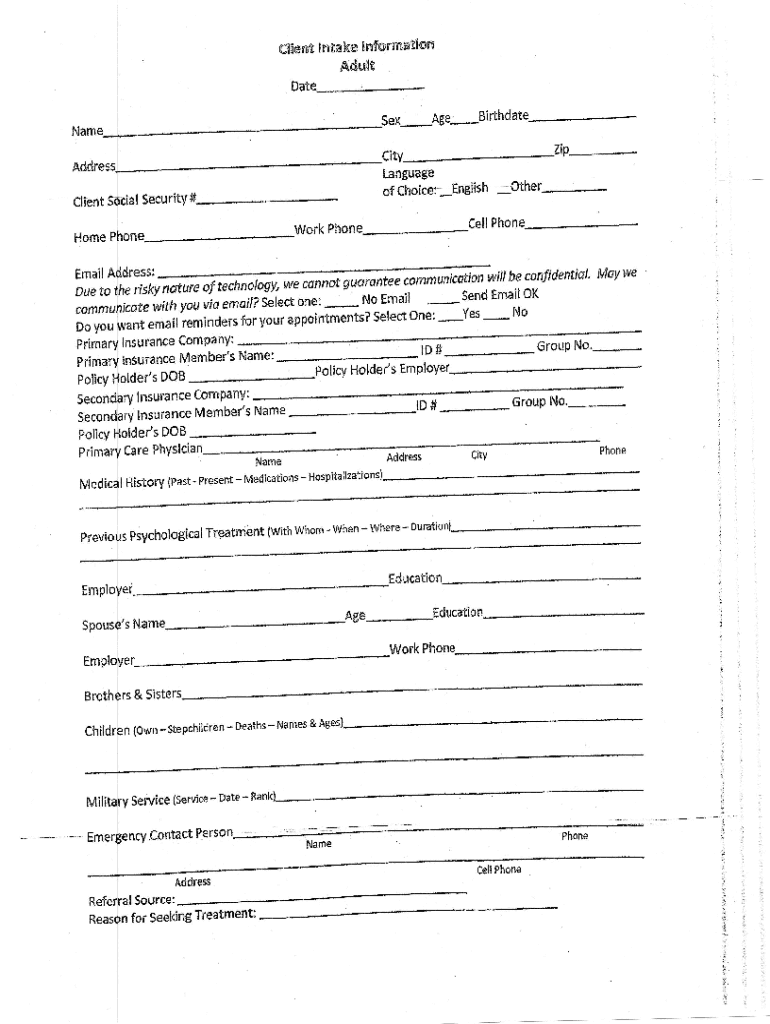 Client Intake Information
Adult
Date______________
Name______________Sex____Age____Birthdate______________
Address______________City______________Zip__________
Client Social Security #______________ Language of Choice: __English __Other__________
Home Phone______________Work Phone______________Cell Phone______________
Email Address: ______________
Due to the risky nature of technology, we cannot guarantee communication will be confidential. May we
communicate with you via email? Select one: _____ No Email _____ Send Email OK
Do you want email reminders for your appointments? Select One: ____Yes ____ No
Primary Insurance Company: ______________
Primary Insurance Member's Name: ______________ ID # __________ Group No.______
Policy Holder's DOB ______________Policy Holder's Employer______________
Secondary Insurance Company: ______________
Secondary Insurance Member's Name ______________ID # __________ Group No.______
Policy Holder's DOB ______________
Primary Care Physician______________
Name Address City Phone
Medical History (Past - Present – Medications – Hospitalizations)______________
______________
Previous Psychological Treatment (With Whom - When – Where – Duration)______________
______________
Employer______________Education______________
Spouse's Name______________Age________Education______________
Employer______________Work Phone______________
Brothers & Sisters______________
Children (Own – Stepchildren – Deaths – Names & Ages)______________
______________
Military Service (Service – Date – Rank)______________
Emergency Contact Person______________
Name Phone
______________
Address Cell Phone
Referral Source: ______________
Reason for Seeking Treatment: ______________